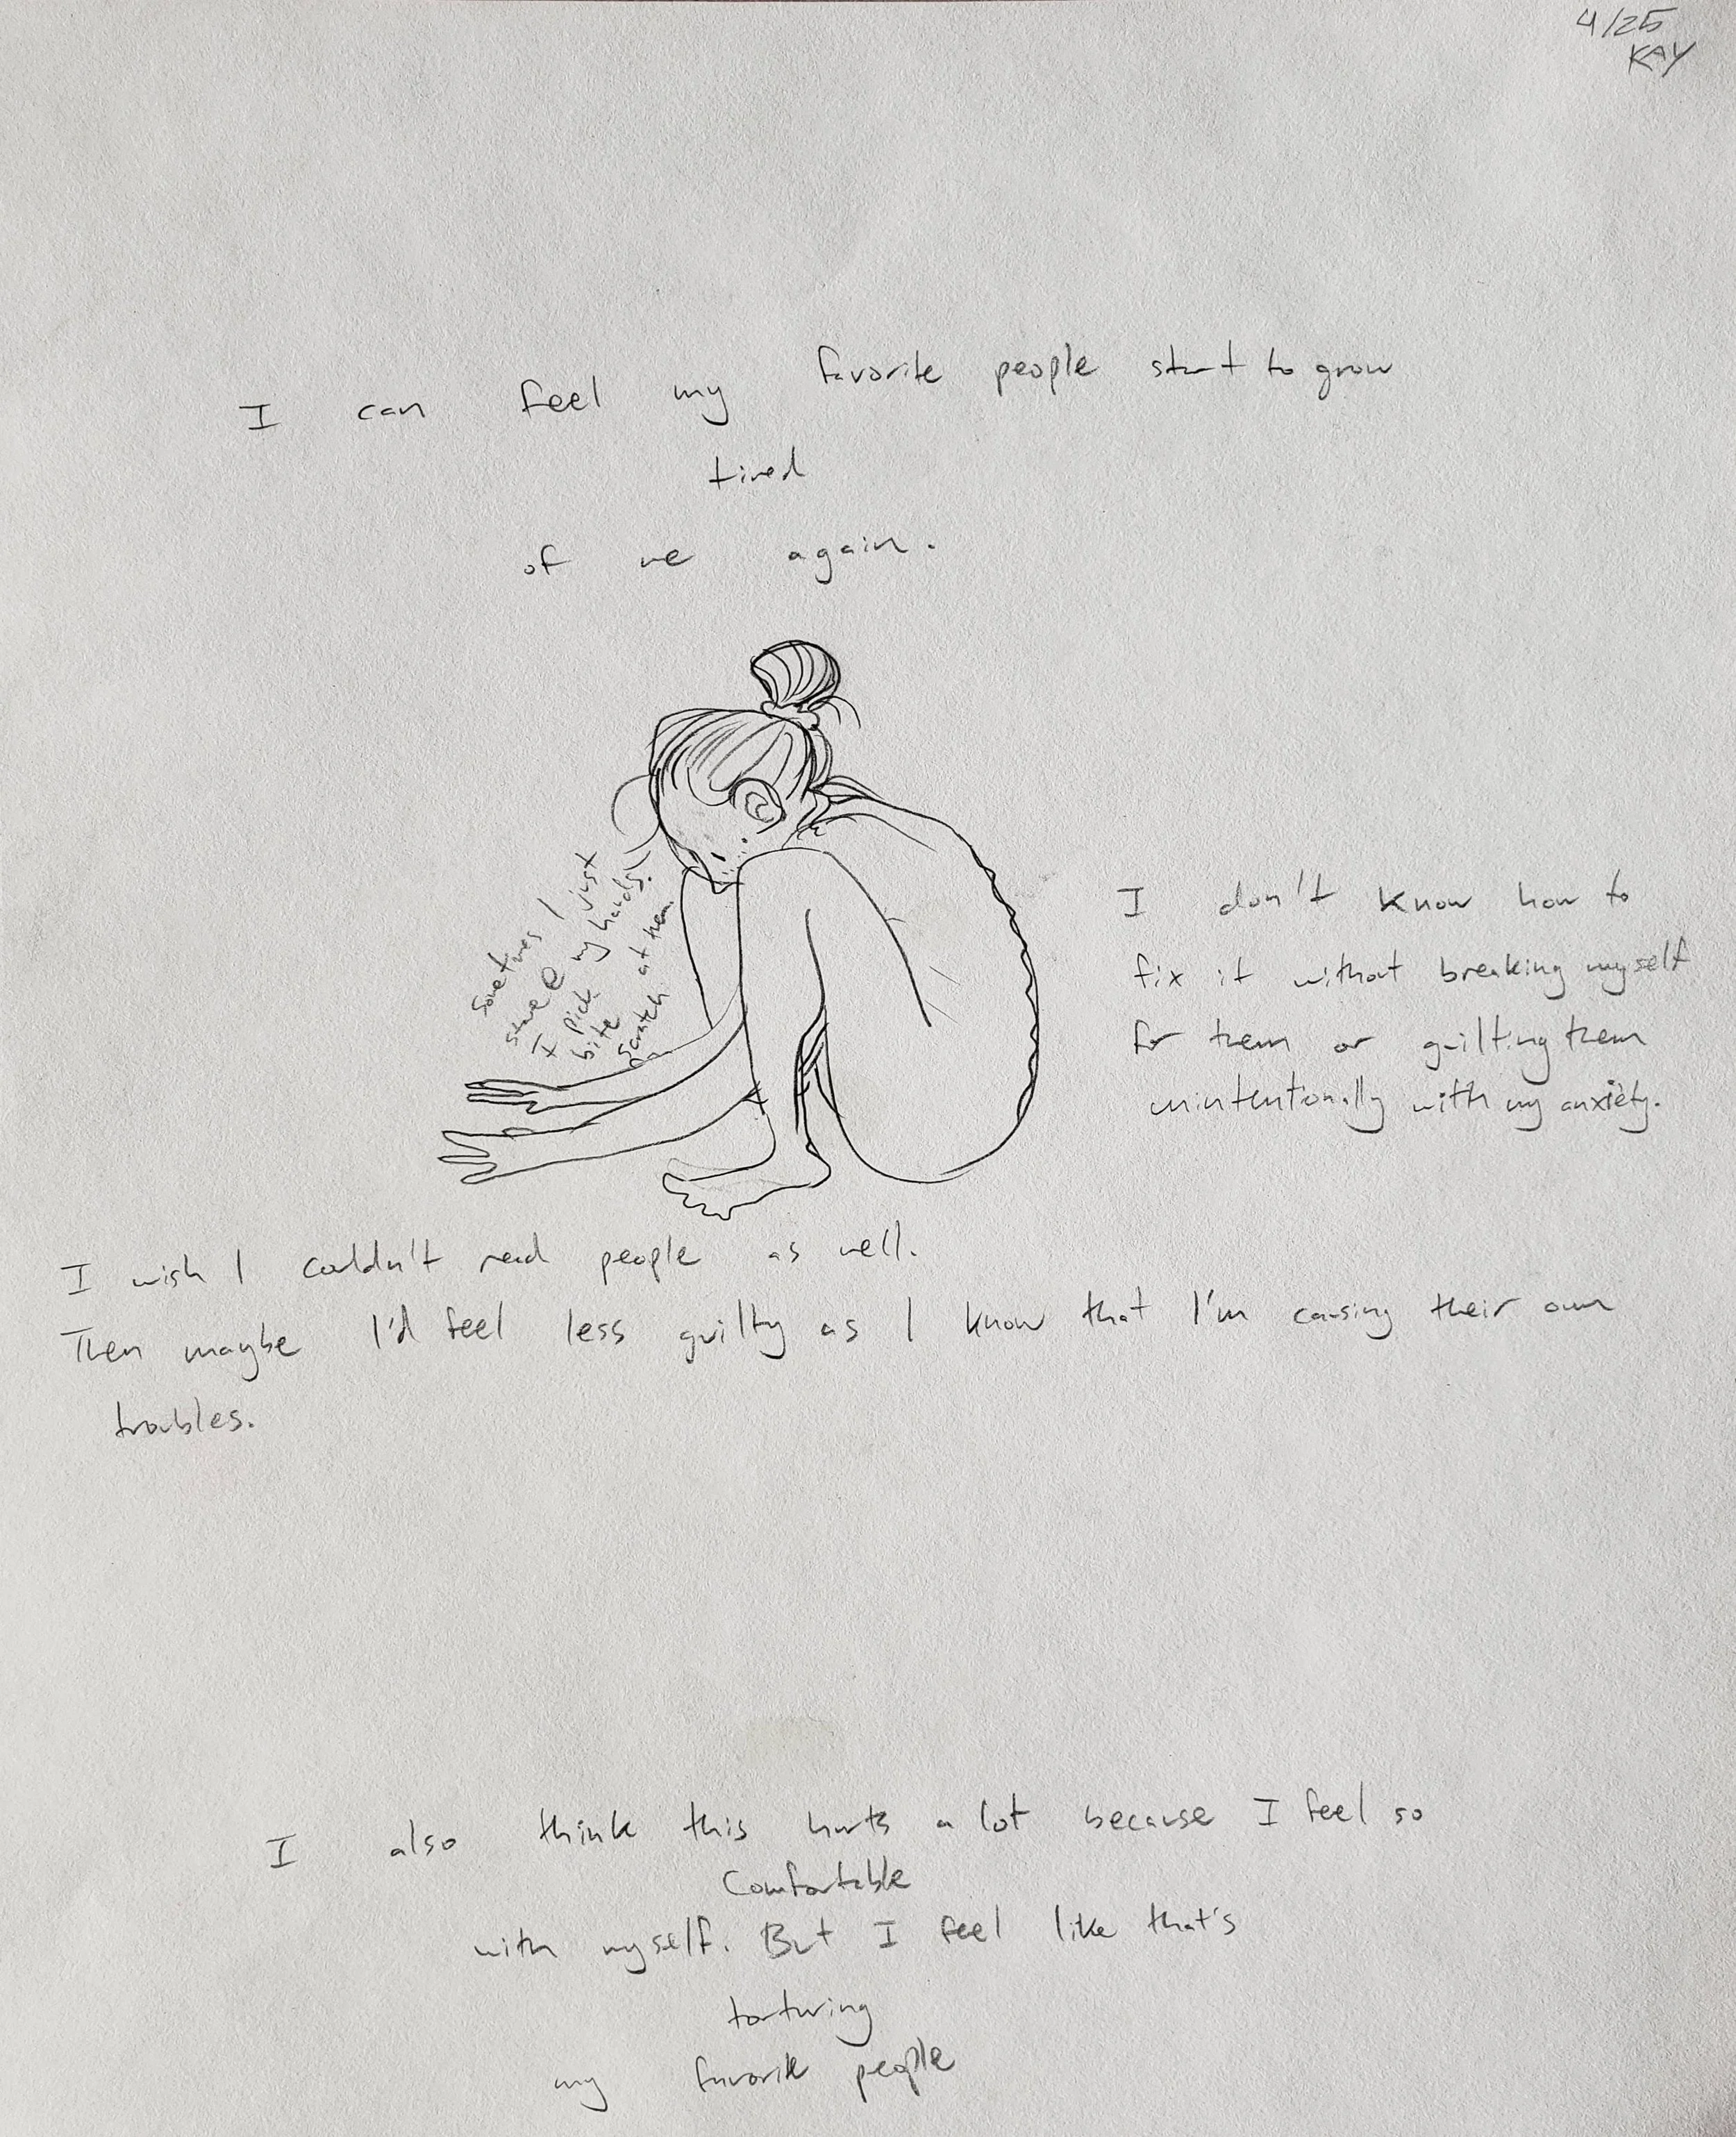 4/25
KAY
I can feel my favorite people start to grow
tired
of me again.
Sometimes I just
stare @ my hands.
I pick
bite
scratch at them.
I don't know how to
fix it without breaking myself
for them or guilting them
unintentionally with my anxiety.
I wish I couldn't read people as well.
Then maybe I'd feel less guilty as I know that I'm causing their own
troubles.
I also think this hurts a lot because I feel so
comfortable
with myself. But I feel like that's
torturing
my favorite people